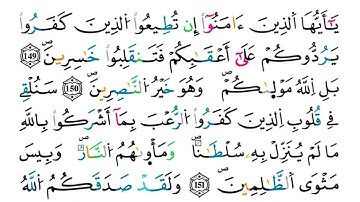 يَٰٓأَيُّهَا اَ۬لذِينَ ءَامَنُوٓاْ إِن تُطِيعُواْ اُ۬لذِينَ كَفَرُواْ
يَرُدُّوكُمْ عَلَىٰٓ أَعْقَٰبِكُمْ فَتَنقَلِبُواْ خَٰسِرِينَۖ ١٤٩
بَلِ اِ۬للَّهُ مَوْلَىٰكُمْۖ وَهُوَ خَيْرُ اُ۬لنَّٰصِرِينَۖ ١٥٠ سَنُلْقِے
فِے قُلُوبِ اِ۬لذِينَ كَفَرُواْ اُ۬لرُّعْبَ بِمَآ أَشْرَكُواْ بِاللَّهِ
مَا لَمْ يُنَزِّلْ بِهِۦ سُلْطَٰناٗۖ وَمَأْوَىٰهُمُ اُ۬لنَّارُۖ وَبِيسَ
مَثْوَى اَ۬لظَّٰلِمِينَۖ ١٥١ وَلَقَدْ صَدَقَكُمُ اُ۬للَّهُ